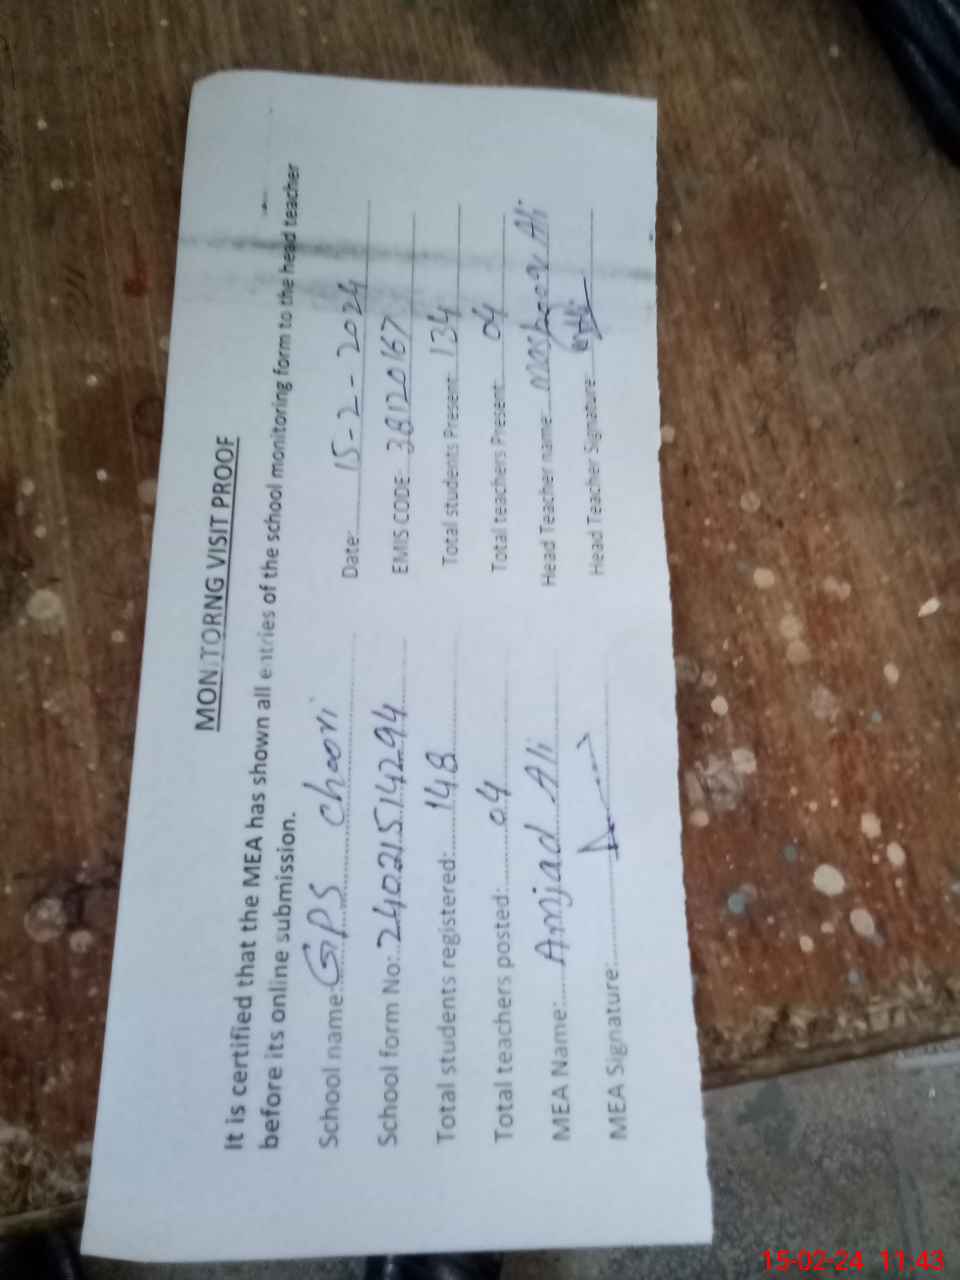 MONITORNG VISIT PROOF
It is certified that the MEA has shown all entries of the school monitoring form to the head teacher
before its online submission.
School name: GPS choori Date: 15-2-2024
School form No: 24021514294 EMIS CODE: 38120167
Total students registered: 148 Total students Present: 134
Total teachers posted: 04 Total teachers Present: 04
MEA Name: Amjad Ali Head Teacher name: Ali
MEA Signature: Head Teacher Signature:
15-02-24 11:43